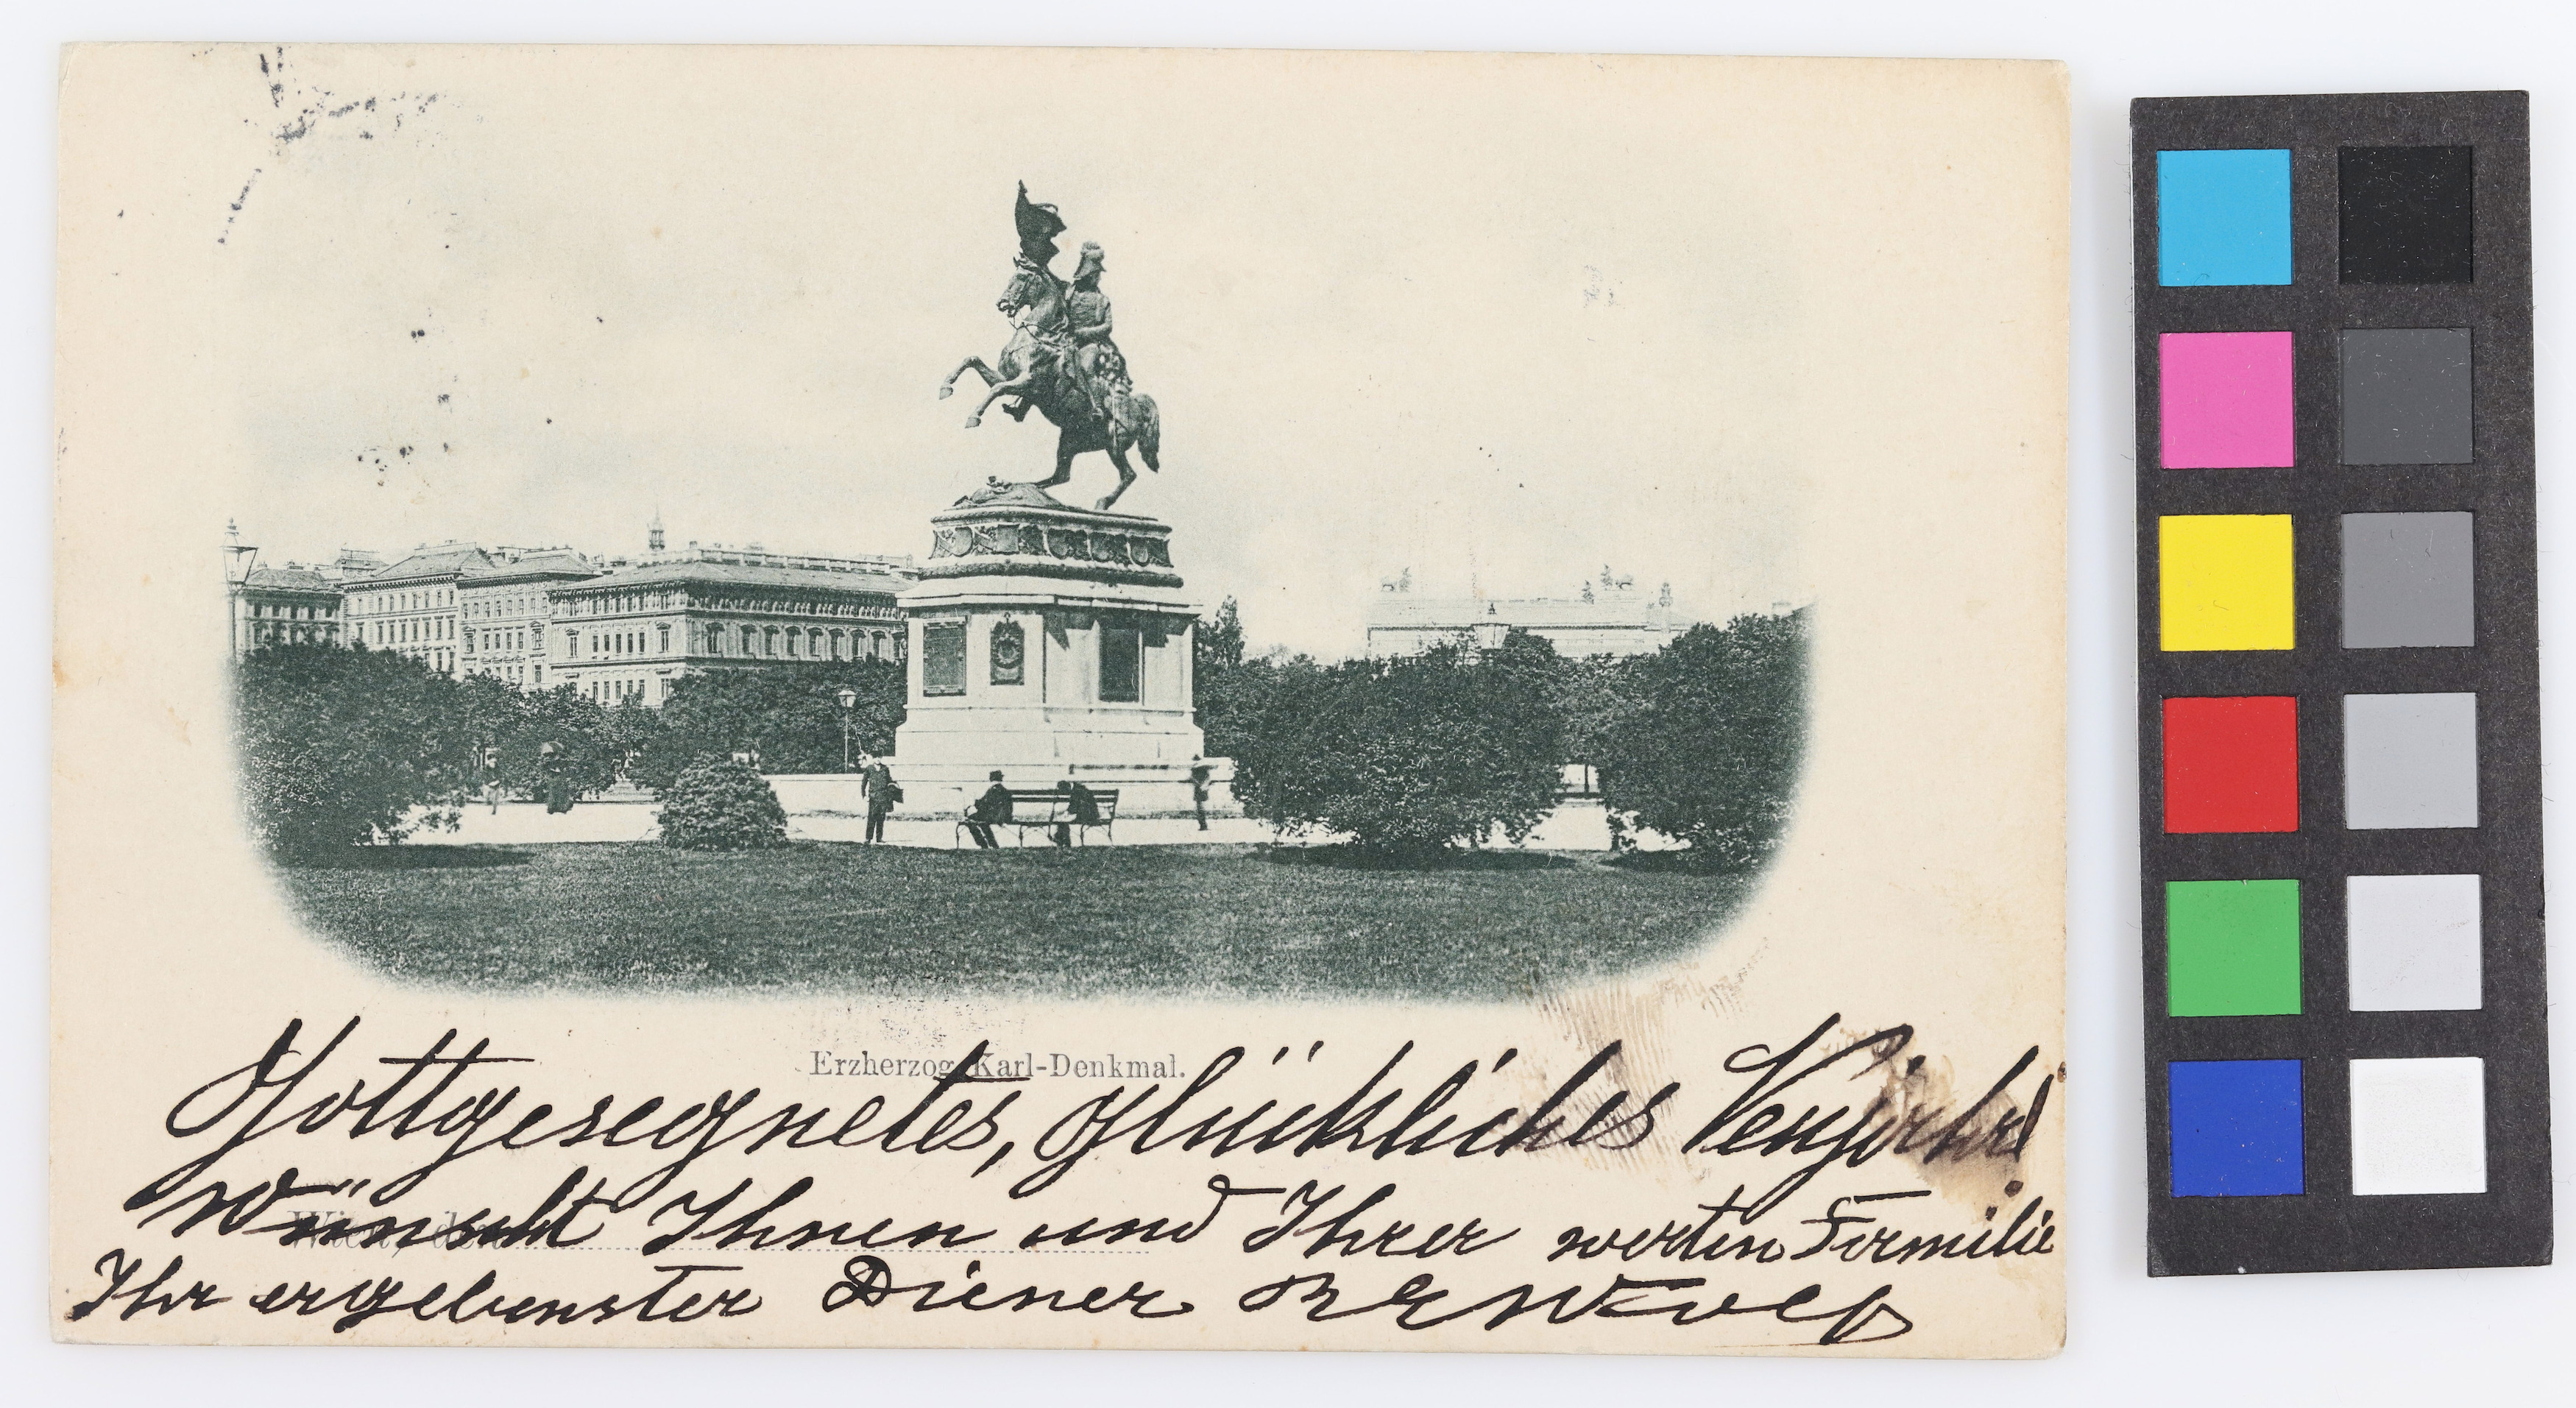 Erzherzog Karl-Denkmal.
Gottgesegnetes, glückliches Neujahr!
Wien, den
wünscht Ihnen und Ihrer werten Familie
Ihr ergebenster Diener